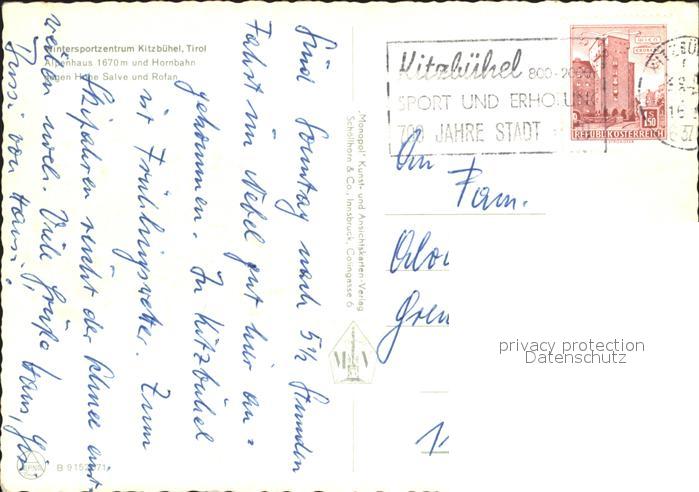 Wintersportzentrum Kitzbühel, Tirol
Alpenhaus 1670 m und Hornbahn
gegen Hohe Salve und Rofan
Sind Sonntag nach 5½ Stunden
Fahrt im Nebel gut hier an=
gekommen. In Kitzbühel
ist Frühlingswetter. Zum
Skifahren reicht der Schnee aus
weiten noch. Viele Grüße Hans,
Bussi von Hansi.
"Monopol" Kunst- und Ansichtskarten-Verlag
Schöllhorn & Co., Innsbruck, Colingasse 6
B 9152
Kitzbühel 800-2000
SPORT UND ERHOLUNG
700 JAHRE STADT
WIEN
S 1.50
REPUBLIK ÖSTERREICH
An
Fam.
Gren
privacy protection
Datenschutz